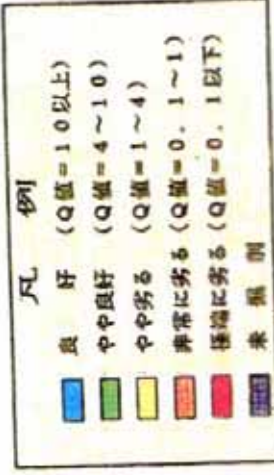 凡 例
良 好 (Q値=10以上)
やや良好 (Q値=4~10)
やや劣る (Q値=1~4)
非常に劣る (Q値=0.1~1)
極端に劣る (Q値=0.1以下)
未 掘 削